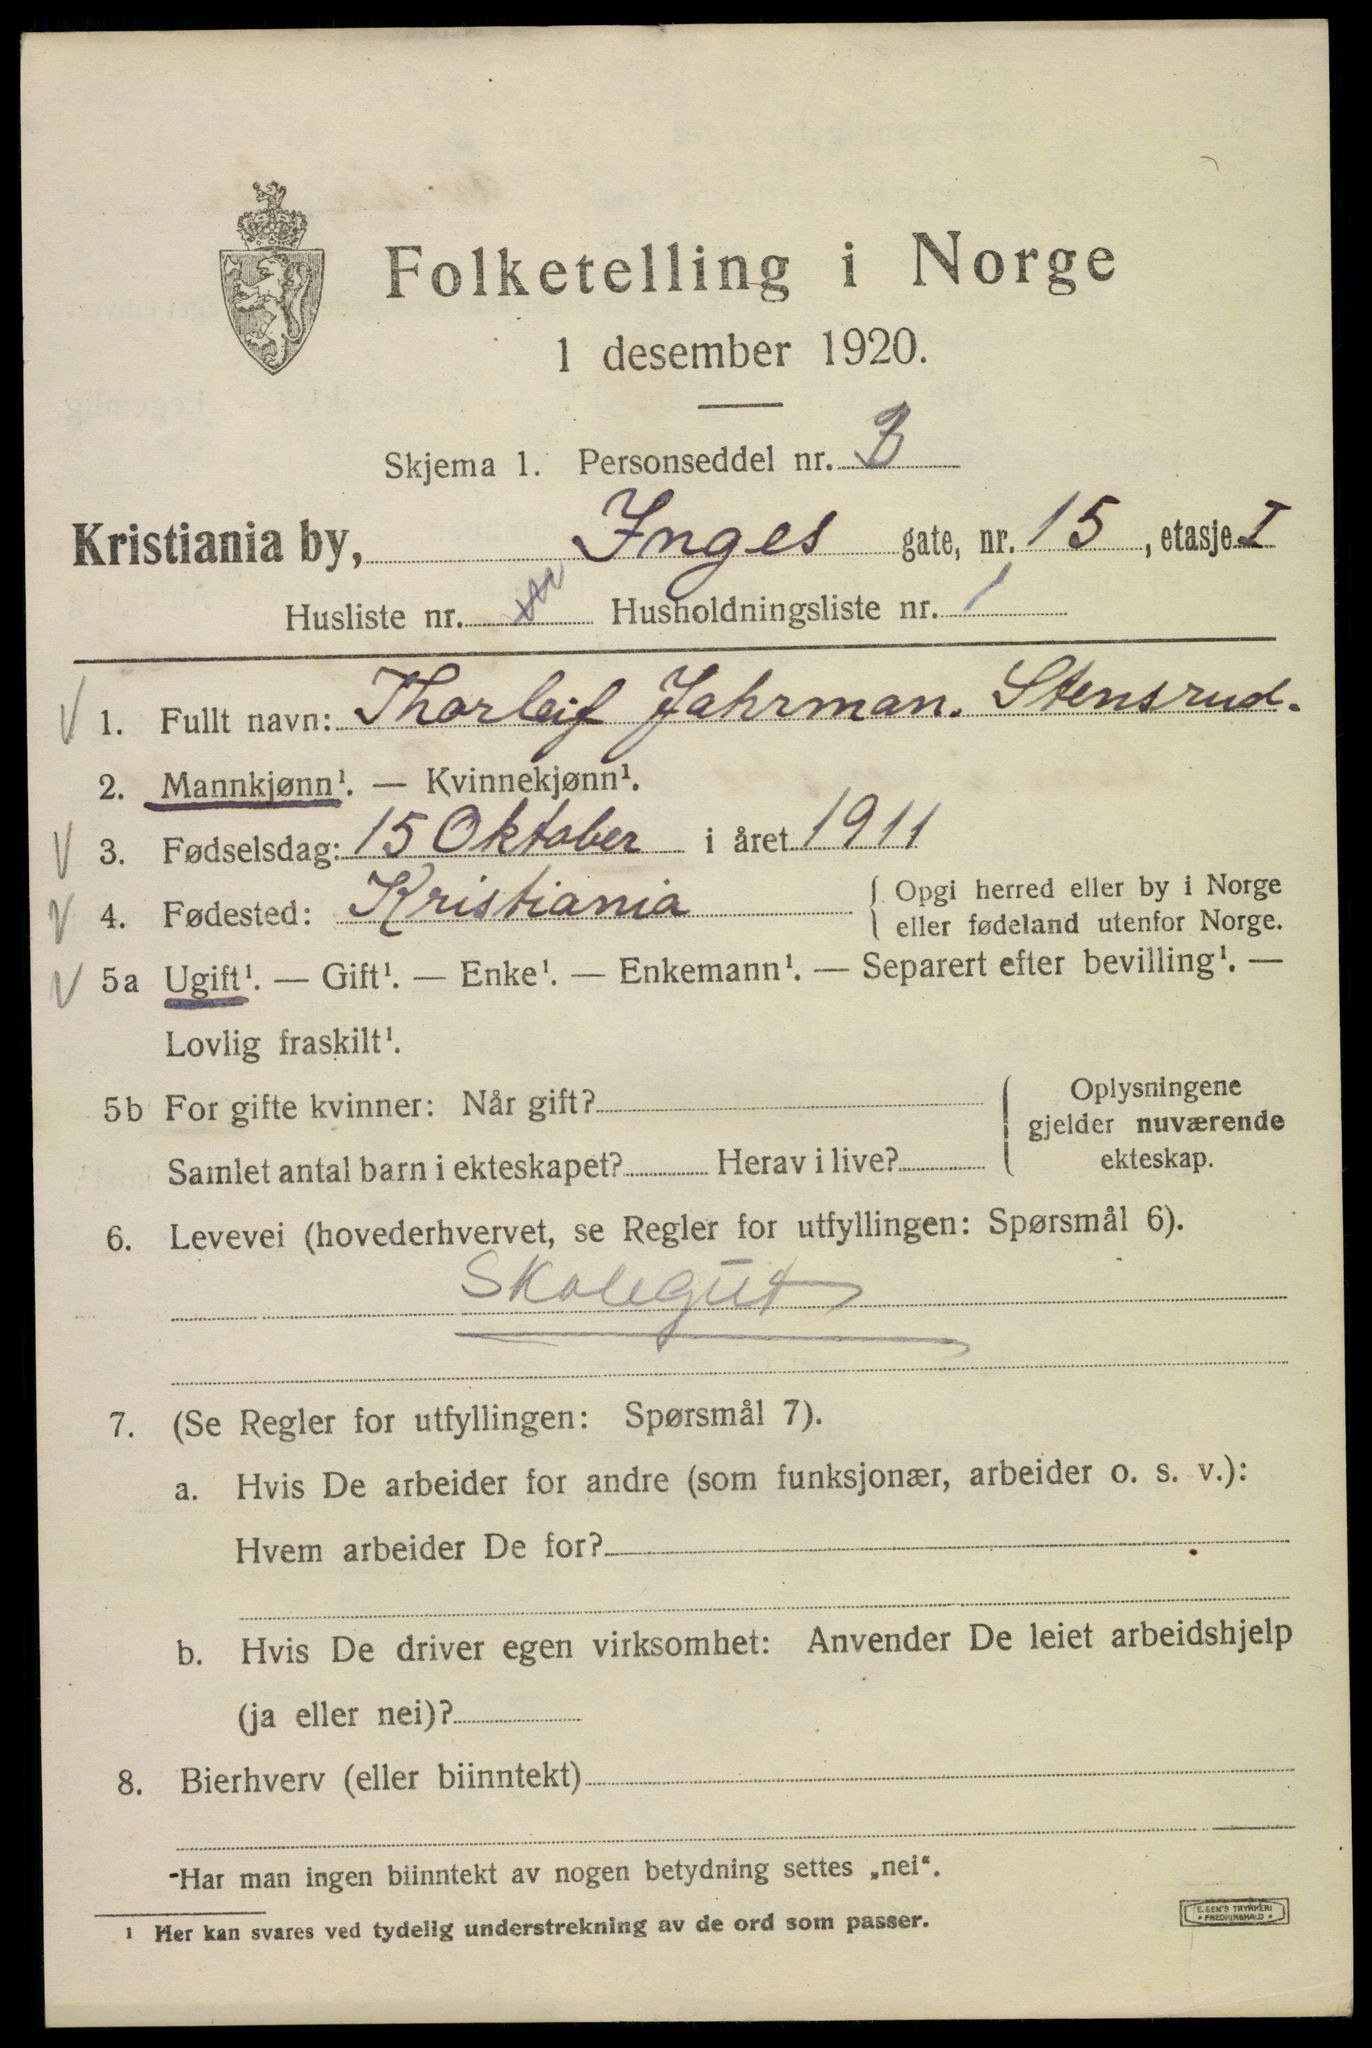 Folketelling i Norge
1 desember 1920.
Skjema 1. Personseddel nr. 3
Kristiania by, Inges gate, nr. 15, etasje I
Husliste nr. Husholdningsliste nr. 1
1. Fullt navn: Thorleif Jahrman. Stensrud.
2. Mannkjønn¹. — Kvinnekjønn¹.
3. Fødselsdag: 15 Oktober i året 1911
4. Fødested: Kristiania { Opgi herred eller by i Norge
eller fødeland utenfor Norge.
5a Ugift¹. — Gift¹. — Enke¹. — Enkemann¹. — Separert efter bevilling¹. —
Lovlig fraskilt¹.
5b For gifte kvinner: Når gift?
Samlet antal barn i ekteskapet? Herav i live?
Oplysningene
gjelder nuværende
ekteskap.
6. Levevei (hovederhvervet, se Regler for utfyllingen: Spørsmål 6).
Skolegut
7. (Se Regler for utfyllingen: Spørsmål 7).
a. Hvis De arbeider for andre (som funksjonær, arbeider o. s. v.):
Hvem arbeider De for?
b. Hvis De driver egen virksomhet: Anvender De leiet arbeidshjelp
(ja eller nei)?
8. Bierhverv (eller biinntekt)
Har man ingen biinntekt av nogen betydning settes „nei“.
¹ Her kan svares ved tydelig understrekning av de ord som passer.
E. SEM'S TRYKKERI
* FREDRIKSHALD *